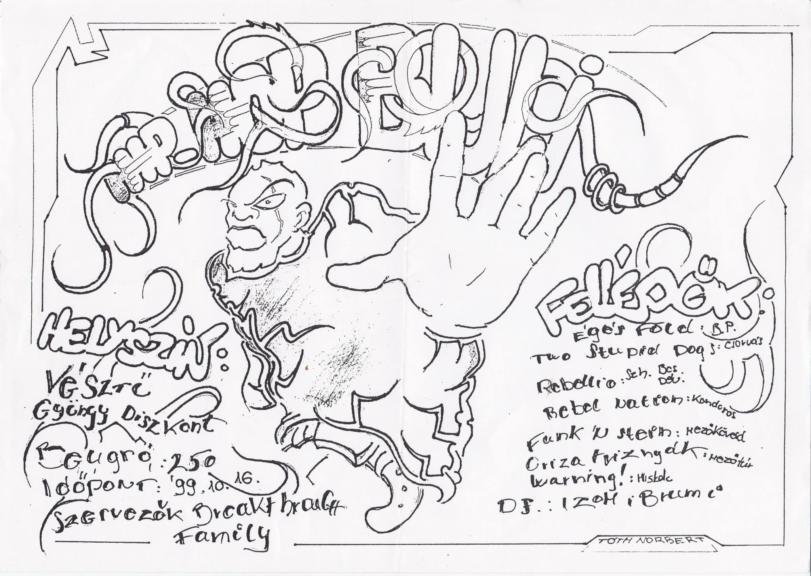 HELYSZÍN:
Vésztő
Gyöngy Diszkont
Beugró: 250
Időpont: '99.10.16.
Szervezők Breakthrough
Family
FELLÉPŐK:
Égő Föld: B.P.
Two Stupid Dogs: Csorvás
Rebellio: Sch. Bos. Deb.
Rebel Nation: Kondoros
Funk 'N Stein: Mezőkövesd
Oriza Triznyák: Mezőtúr
Warning!: Miskolc
DJ.: IZOM i Brumi
TÓTH NORBERT